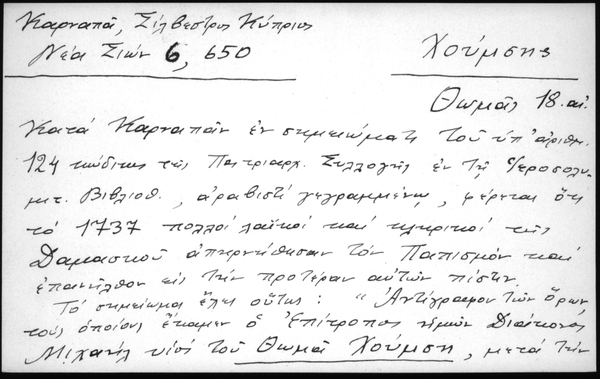 Καρναπᾶ, Σίλβεστρος Κύπριος
Νέα Σιών 6, 650
Χούμσης
Θωμᾶς 18. αἰ.
Κατά Καρναπᾶν ἐν σημειώματι τοῦ ὑπ' ἀριθμ.
124 κώδικος τῆς Πατριαρχ. Συλλογῆς ἐν τῇ Ἱεροσολυ-
μιτ. Βιβλιοθ., ἀραβιστί γεγραμμένῳ, φέρεται ὅτι
τό 1737 πολλοί λαϊκοί καί κληρικοί τῆς
Δαμασκοῦ ἀπηρνήθησαν τόν Παπισμόν καί
ἐπανῆλθον εἰς τήν προτέραν αὐτῶν πίστιν.
Τό σημείωμα ἔχει οὕτως: "Ἀντίγραφον τῶν ὅρων
τούς ὁποίους ἔκαμεν ὁ Ἐπίτροπος ἡμῶν Διάκονος
Μιχαήλ υἱός τοῦ Θωμᾶ Χούμση, μετά τήν